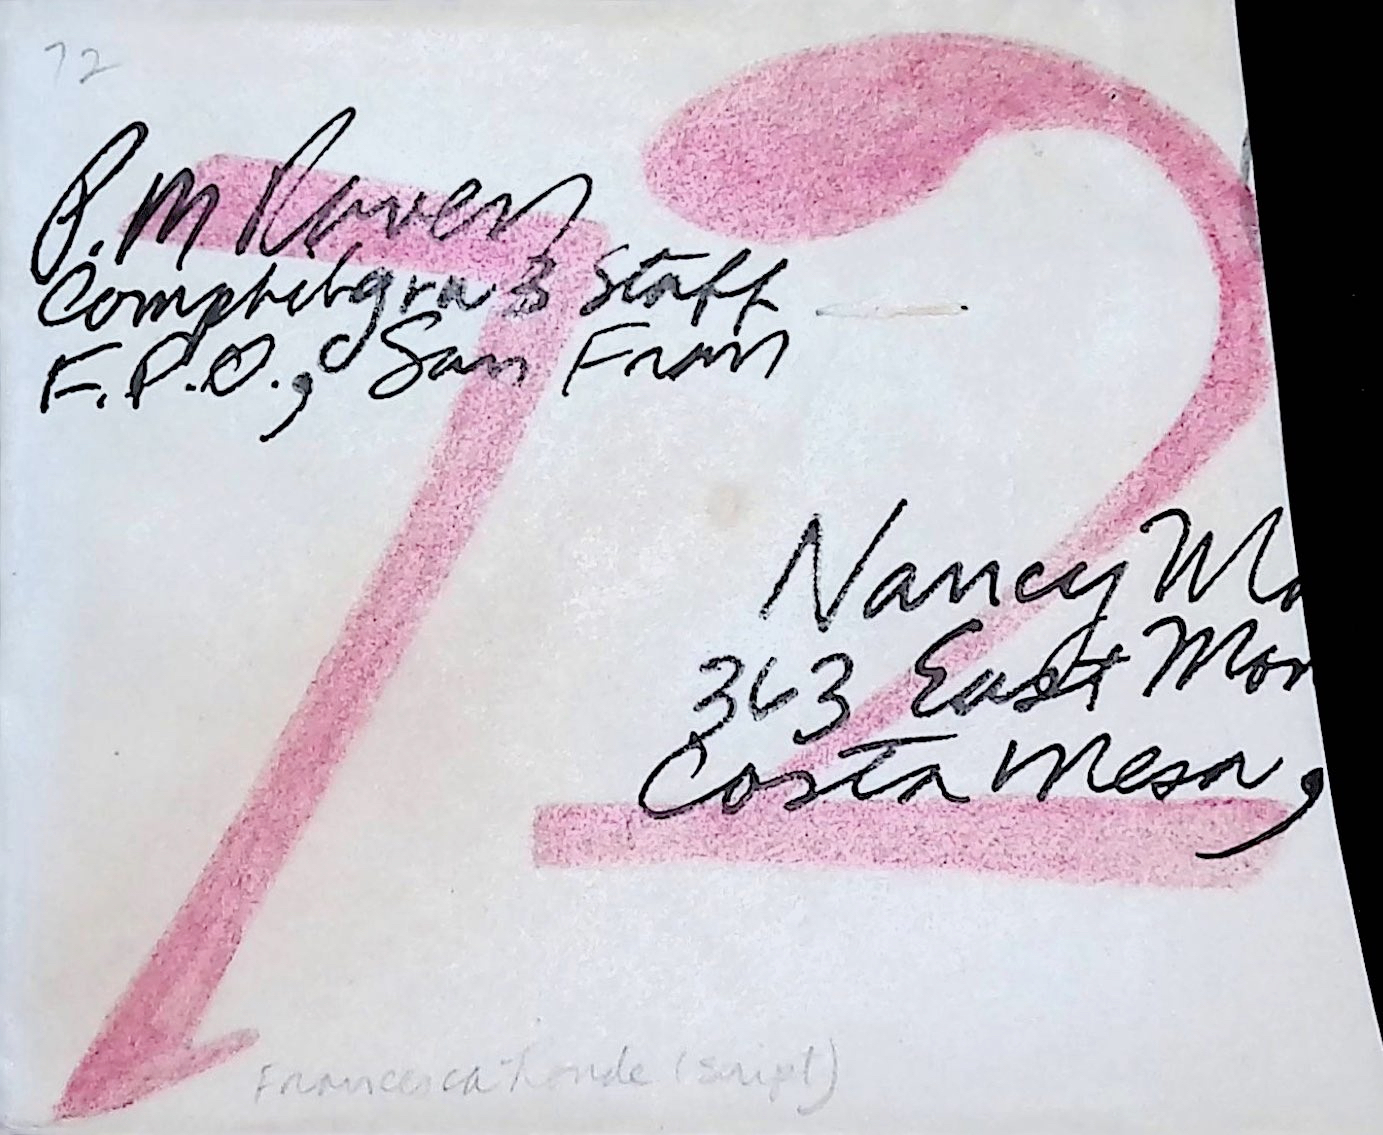 72
72
P. M Raven
Comphibgru 3 Staff
F.P.O., San Fran
Nancy Mo
363 East Mor
Costa Mesa,
Francesca Ronde (script)